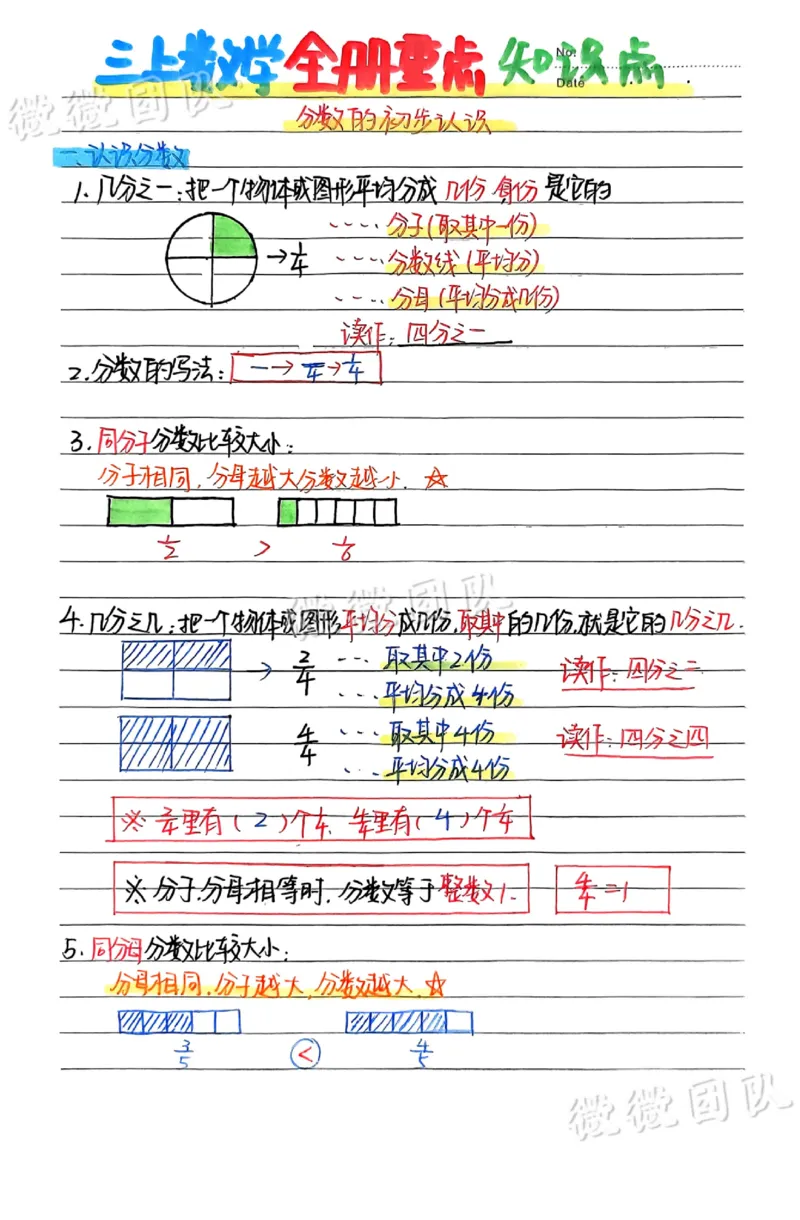 三上数学全册重点知识点
No.
Date
分数的初步认识
一、认识分数
1、几分之一：把一个物体或图形平均分成几份 每份是它的
→1/4
····分子(取其中一份)
····分数线(平均分)
····分母(平均分成几份)
读作：四分之一
2.分数的写法： 一→ 一/4→1/4
3.同分子分数比较大小：
分子相同，分母越大分数越小. ☆
1/2 > 1/6
4.几分之几：把一个物体或图形平均分成几份，取其中的几份，就是它的几分之几.
→ 2/4 ···取其中2份 读作：四分之二
···平均分成4份
4/4 ···取其中4份 读作：四分之四
···平均分成4份
※ 2/4里有(2)个1/4，4/4里有(4)个1/4
※ 分子.分母相等时，分数等于整数1. 4/4=1
5.同分母分数比较大小：
分母相同.分子越大，分数越大.☆
3/5 < 4/5
微微团队
微微团队
微微团队